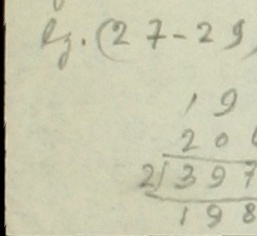 (27-29)
19
20
2)397
198